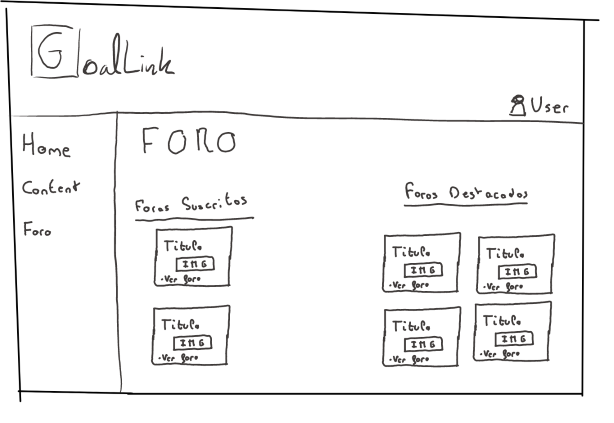 GoalLink
User
Home
Content
Foro
FORO
Foros Suscritos
Titulo
IMG
·Ver foro
Titulo
IMG
·Ver foro
Foros Destacados
Titulo
IMG
·Ver foro
Titulo
IMG
·Ver foro
Titulo
IMG
·Ver foro
Titulo
IMG
·Ver foro